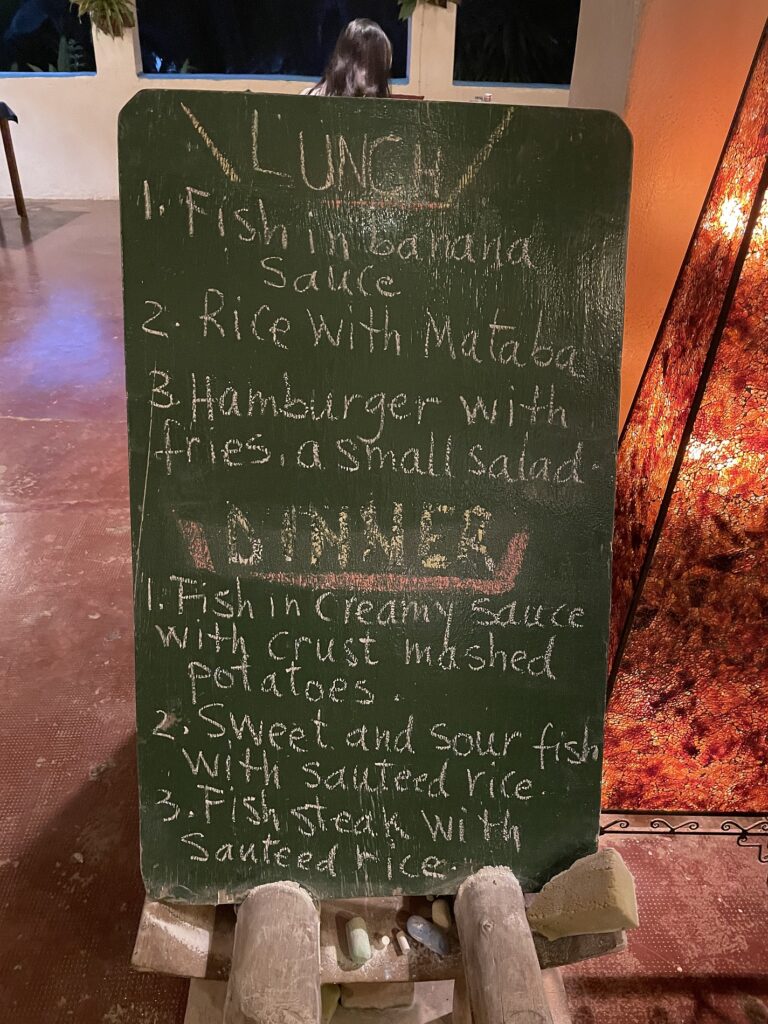 LUNCH
1. Fish in banana
sauce
2. Rice with Mataba
3. Hamburger with
fries, a small salad.
DINNER
1. Fish in creamy sauce
with crust mashed
potatoes.
2. Sweet and sour fish
with sauteed rice.
3. Fish steak with
sauteed rice